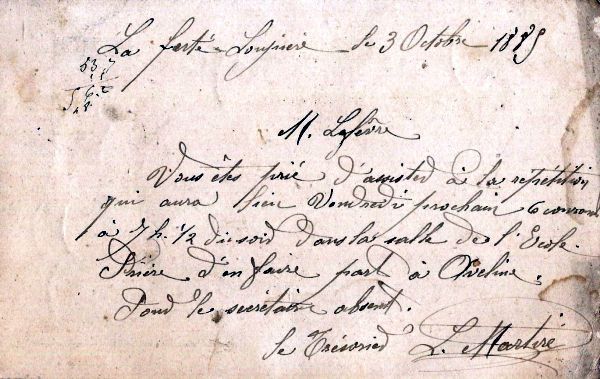 La ferté-Loupière le 3 Octobre 1885
M. Lefèvre
Vous êtes prié d'assister à la repétition
qui aura lieu Vendredi prochain courant
à 7 h. 1/2 du soir dans la salle de l'Ecole.
Prière d'en faire part à Aveline.
Pour le secrétaire absent.
le Trésorier L. Martiré